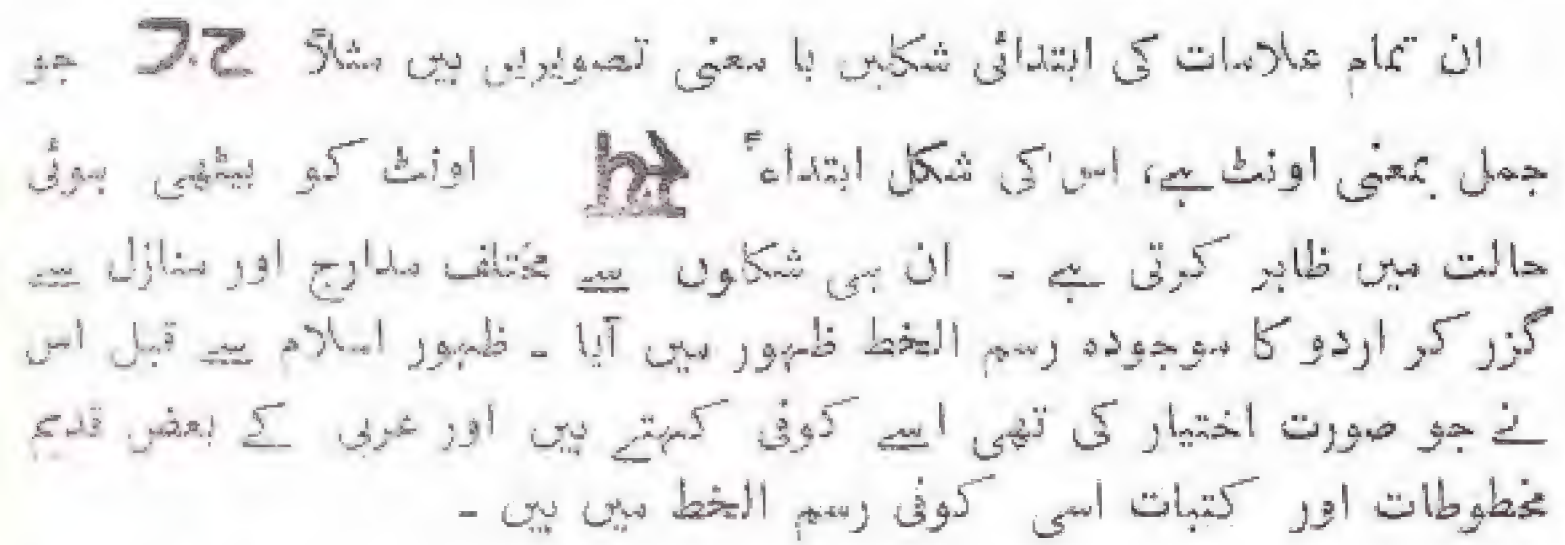 ان تمام علامات کی ابتدائی شکلیں با معنی تصویریں ہیں مثلاً ج جو
جمل بمعنی اونٹ ہے، اس کی شکل ابتداءً اونٹ کو بیٹھی ہوئی
حالت میں ظاہر کرتی ہے ۔ ان ہی شکلوں سے مختلف مدارج اور منازل سے
گزر کر اردو کا موجودہ رسم الخط ظہور میں آیا ۔ ظہور اسلام سے قبل اس
نے جو صورت اختیار کی تھی اسے کوفی کہتے ہیں اور عربی کے بعض قدیم
مخطوطات اور کتبات اسی کوفی رسم الخط میں ہیں ۔